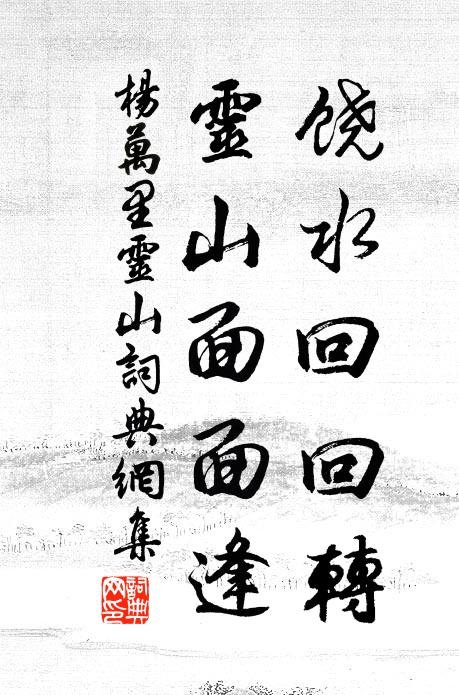 饶水回回轉
靈山面面逢
楊萬里靈山詞典網集
詞典